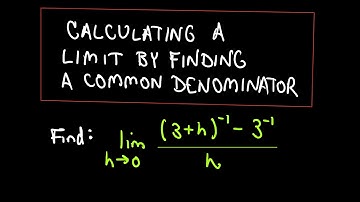 CALCULATING A
LIMIT BY FINDING
A COMMON DENOMINATOR
Find: lim h→0 ((3+h)⁻¹ - 3⁻¹) / h